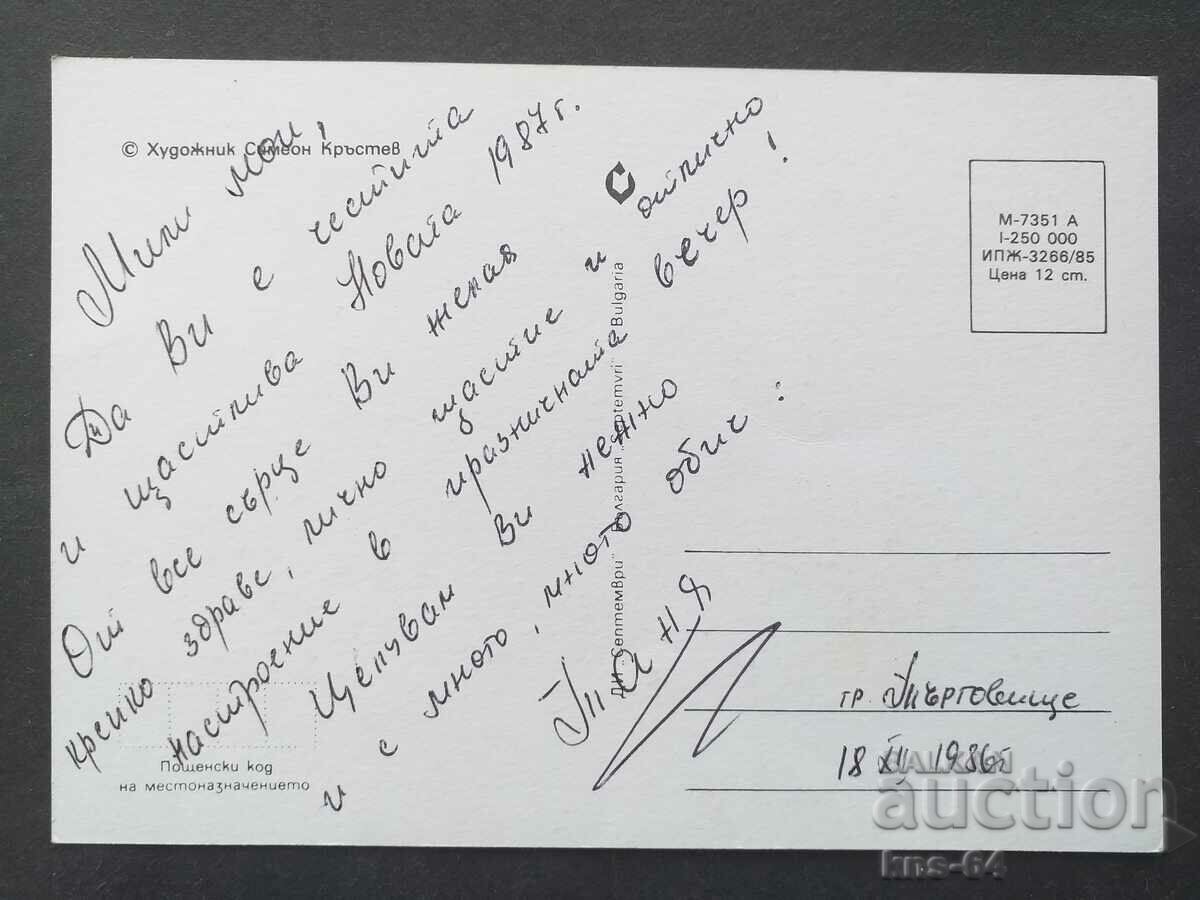 © Художник Симеон Кръстев
Мили мои,
Да Ви е честита
и щастлива Новата 1987 г.
От все сърце Ви желая
крепко здраве, лично щастие и отлично
настроение в празничната вечер!
Целувам Ви нежно
и с много, много обич:
Таня
ДИ „Септември“ България „Septemvri“ Bulgaria
М-7351 А
I-250 000
ИПЖ-3266/85
Цена 12 ст.
гр. Търговище
18 XII 1986 г.
Пощенски код
на местоназначението
BALKAN
auction
kns-64